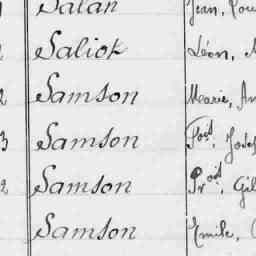 Salan Jean,
Saliot Léon,
2 Samson Marie, An
3 Samson
2 Samson Gil
Samson Emile,